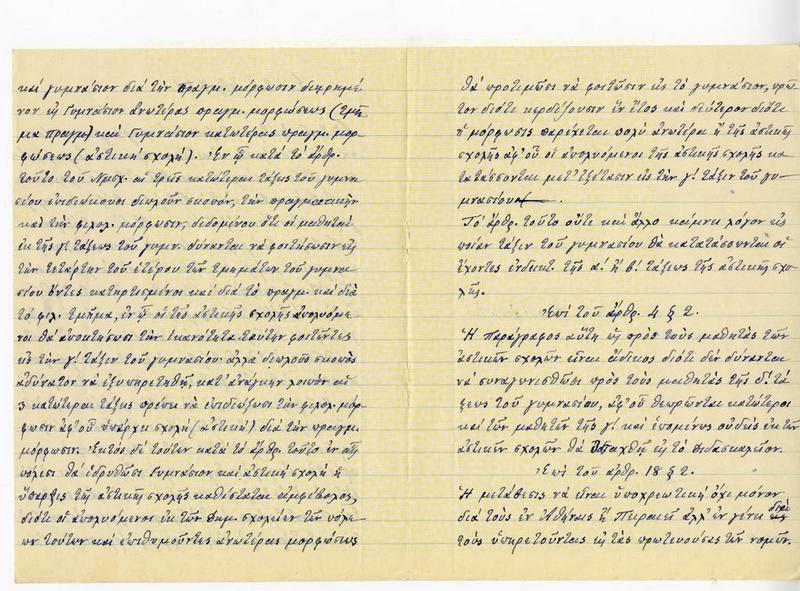 καὶ γυμνάσιον διὰ τὴν πραγμ. μόρφωσιν διῃρημέ-
νον εἰς Γυμνάσιον ἀνωτέρας πραγμ. μορφώσεως (τμῆ-
μα πραγμ.) καὶ Γυμνάσιον κατωτέρας πραγμ. μορ-
φώσεως (ἀστικὴ σχολή). Ἐν ᾧ κατὰ τὸ ἄρθρ.
τοῦτο τοῦ Νμσχ. αἱ τρεῖς κατώτεραι τάξεις τοῦ γυμνα-
σίου ἐπιδιώκουσι διπλοῦν σκοπόν, τὴν πραγματικὴν
καὶ τὴν φιλολ. μόρφωσιν, δεδομένου ὅτι οἱ μαθηταὶ
ἐκ τῆς γ΄. τάξεως τοῦ γυμν. δύνανται νὰ φοιτήσωσιν εἰς
τὴν τετάρτην τοῦ ἑτέρου τῶν τμημάτων τοῦ γυμνα-
σίου ὄντες κατηρτισμένοι καὶ διὰ τὸ πραγμ. καὶ διὰ
τὸ φιλ. τμῆμα, ἐν ᾧ οἱ τῆς ἀστικῆς σχολῆς ἀπολυόμε-
νοι θὰ ἀποκτήσωσι τὴν ἱκανότητα ταύτην φοιτῶντες
εἰς τὴν γ΄. τάξιν τοῦ γυμνασίου· ἀλλὰ διπλοῦς σκοπὸς
ἀδύνατον νὰ ἐξυπηρετηθῇ, κατ' ἀνάγκην λοιπὸν αἱ
3 κατώτεραι τάξεις πρέπει νὰ ἐπιδιώξωσι τὴν φιλολ. μόρ-
φωσιν ἀφ' οὗ ὑπάρχει σχολὴ (ἀστικὴ) διὰ τὴν πραγμ.
μόρφωσιν. Ἐκτὸς δὲ τούτων κατὰ τὸ ἄρθρ. τοῦτο ἐν αἷς
πόλεσι θὰ ἱδρυθῶσι Γυμνάσιον καὶ ἀστικὴ σχολὴ ἡ
ὕπαρξις τῆς ἀστικῆς σχολῆς καθίσταται ἀμφίβολος,
διότι οἱ ἀπολυόμενοι ἐκ τῶν δημ. σχολείων τῶν πόλε-
ων τούτων καὶ ἐπιθυμοῦντες ἀνωτέρας μορφώσεως
θὰ προτιμῶσι νὰ φοιτῶσιν εἰς τὸ γυμνάσιον, πρῶ-
τον διότι κερδίζουσιν ἓν ἔτος καὶ δεύτερον διότι
ἡ μόρφωσις παρέχεται πολὺ ἀνωτέρα ἢ τῆς ἀστικῆς
σχολῆς ἀφ' οὗ οἱ ἀπολυόμενοι τῆς ἀστικῆς σχολῆς κα-
τατάσσονται μετ' ἐξέτασιν εἰς τὴν γ΄. τάξιν τοῦ γυ-
μνασίου.
Τὸ ἄρθρ. τοῦτο οὔτε καὶ ἄλλο κάμνει λόγον εἰς
ποίαν τάξιν τοῦ γυμνασίου θὰ κατατάσσονται οἱ
ἔχοντες ἐνδεικτ. τῆς α΄. ἢ β΄. τάξεως τῆς ἀστικῆς σχο-
λῆς.
Ἐπὶ τοῦ ἄρθρ. 4 § 2.
Ἡ παράγραφος αὕτη ὡς πρὸς τοὺς μαθητὰς τῶν
ἀστικῶν σχολῶν εἶναι ἄδικος διότι δὲν δύνανται
νὰ συναγωνισθῶσι πρὸς τοὺς μαθητὰς τῆς δ΄. τά-
ξεως τοῦ γυμνασίου, ἀφ' οὗ θεωρῶνται κατώτεροι
καὶ τῶν μαθητῶν τῆς γ΄. καὶ ἑπομένως οὐδεὶς ἐκ τῶν
ἀστικῶν σχολῶν θὰ εἰσαχθῇ εἰς τὸ διδασκαλεῖον.
Ἐπὶ τοῦ ἄρθρ. 18 § 2.
Ἡ μετάθεσις νὰ εἶναι ὑποχρεωτικὴ ὄχι μόνον
διὰ τοὺς ἐν Ἀθήναις ἢ Πειραιεῖ ἀλλ' ἐν γένει διὰ
τοὺς ὑπηρετοῦντας εἰς τὰς πρωτευούσας τῶν νομῶν.